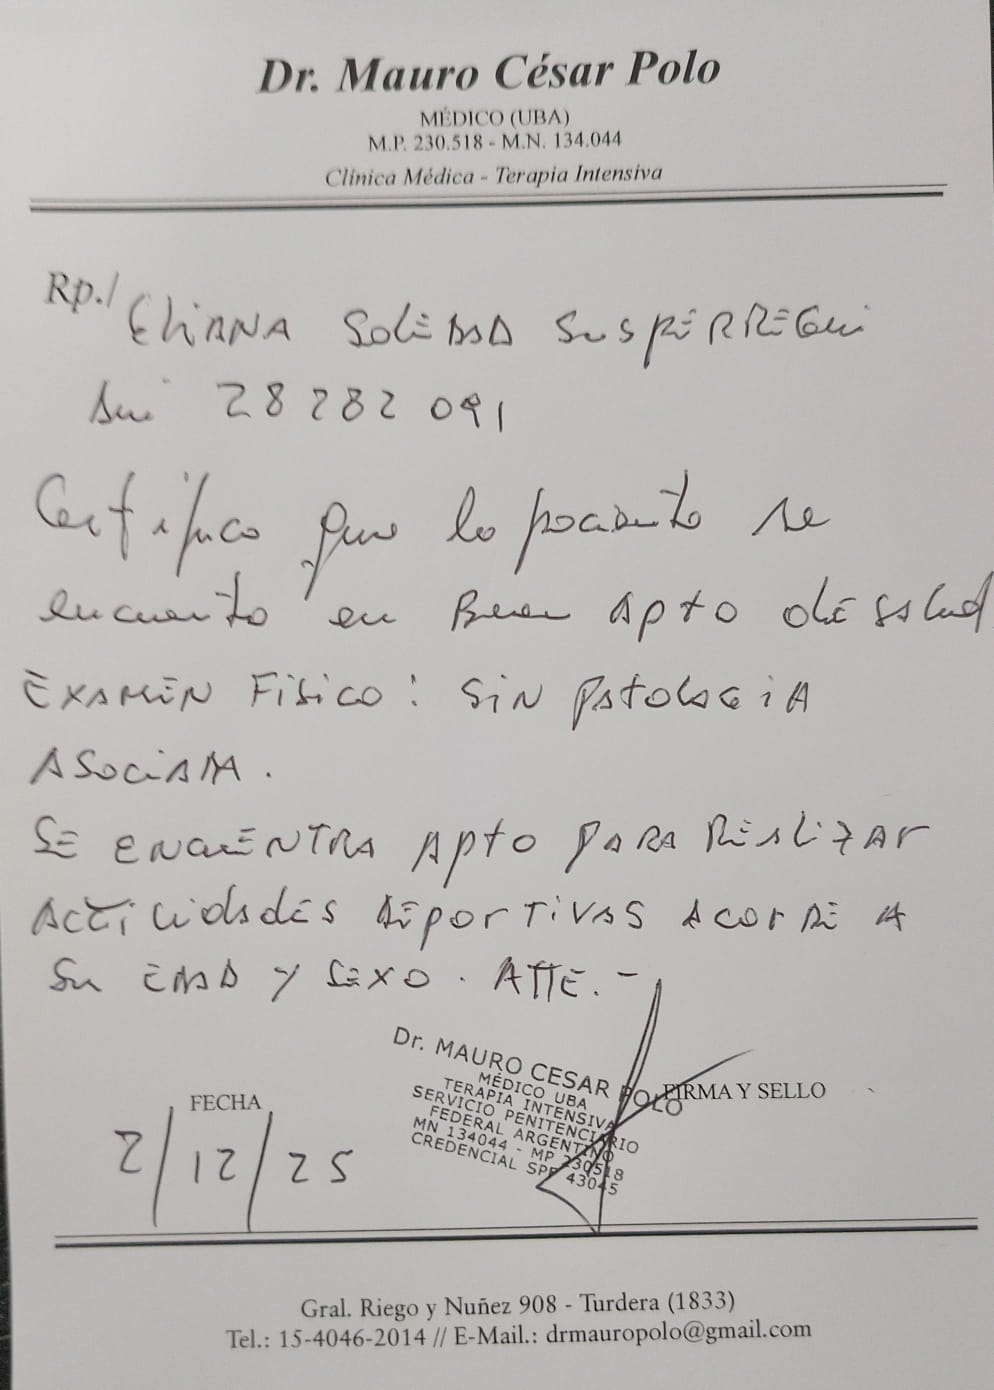 Dr. Mauro César Polo
MÉDICO (UBA)
M.P. 230.518 - M.N. 134.044
Clínica Médica - Terapia Intensiva
Rp./ Eliana SOLEDAD SUSPERREGUI
DNI 28 282 091
Certifico que la paciente se
encuentra en Buen Apto de salud
EXAMEN FISICO: SIN PATOLOGIA
ASOCIADA.
SE ENCUENTRA APTO PARA REALIZAR
ACTIVIDADES DEPORTIVAS ACORDE A
SU EDAD Y SEXO. ATTE.-
Dr. MAURO CESAR POLO
MÉDICO UBA
TERAPIA INTENSIVA
SERVICIO PENITENCIARIO
FEDERAL ARGENTINO
MN 134044 - MP 230518
CREDENCIAL SPF 43045
FIRMA Y SELLO
FECHA
2/12/25
Gral. Riego y Nuñez 908 - Turdera (1833)
Tel.: 15-4046-2014 // E-Mail.: drmauropolo@gmail.com